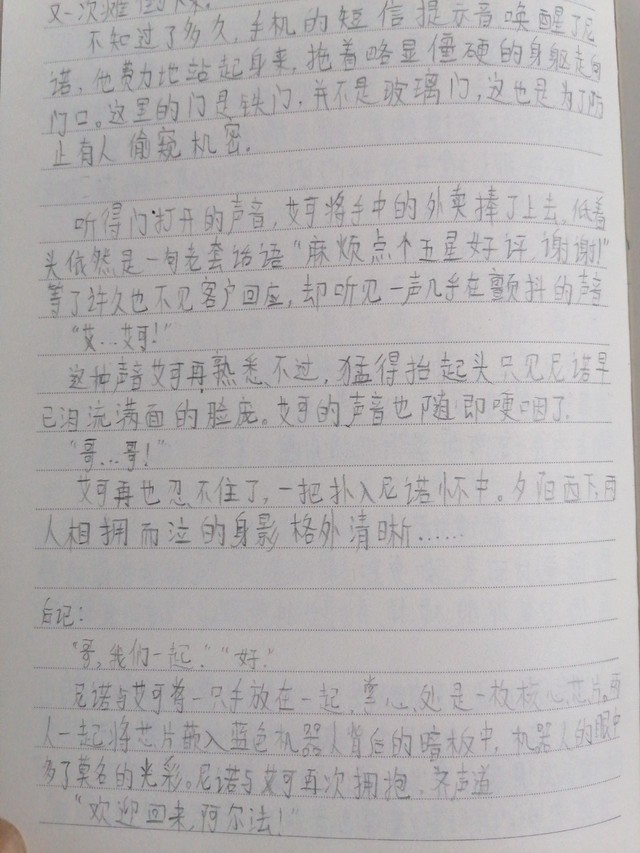 又一次瘫
不知过了多久,手机的短信提示音唤醒了尼
诺,他费力地站起身来,拖着略显僵硬的身躯走向
门口。这里的门是铁门,并不是玻璃门,这也是为了防
止有人偷窥机密.
听得门打开的声音,艾可将手中的外卖捧了上去。低着
头依然是一句老套话语“麻烦点个五星好评,谢谢!”
等了许久也不见客户回应,却听见一声几乎在颤抖的声音
“艾...艾可!”
这种声音艾可再熟悉不过,猛得抬起头只见尼诺早
已泪流满面的脸庞。艾可的声音也随即哽咽了.
“哥...哥!”
艾可再也忍不住了,一把扑入尼诺怀中。夕阳西下,两
人相拥而泣的身影格外清晰......
后记:
“哥,我们一起.”“好.”
尼诺与艾可将一只手放在一起,掌心处是一枚核心芯片。两
人一起将芯片嵌入蓝色机器人背后的暗板中,机器人的眼中
多了莫名的光彩。尼诺与艾可再次拥抱,齐声道
“欢迎回来,阿尔法!”